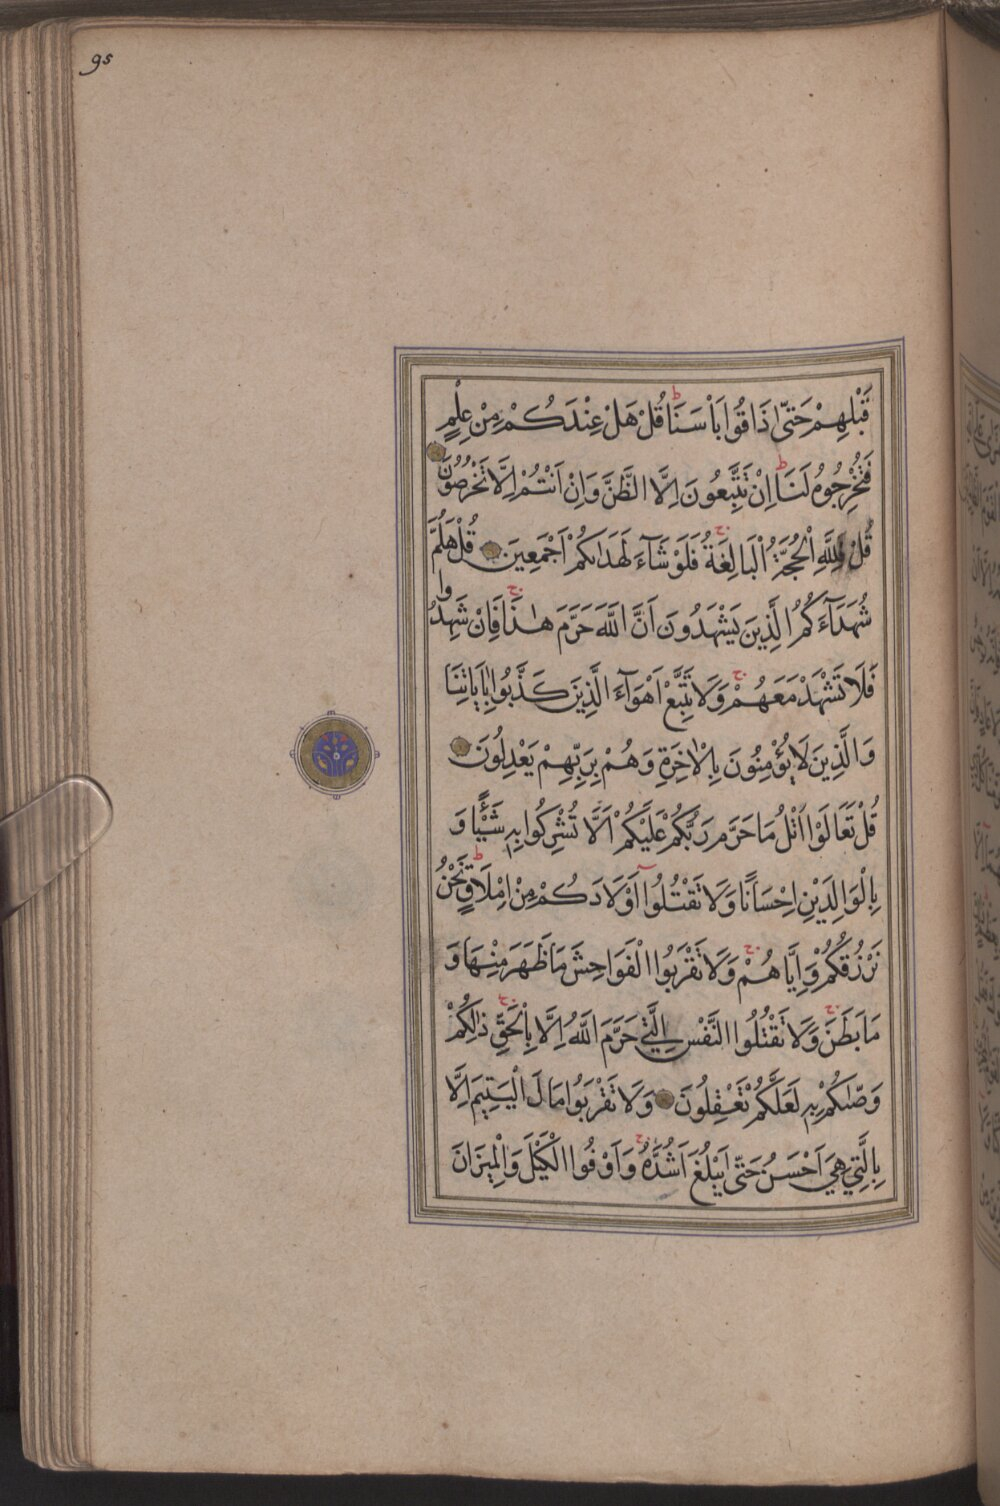 95
قَبْلِهِمْ حَتّٰى ذَاقُوا بَأْسَنَا ط قُلْ هَلْ عِنْدَكُمْ مِنْ عِلْمٍ
فَتُخْرِجُوهُ لَنَا ط اِنْ تَتَّبِعُونَ اِلَّا الظَّنَّ وَاِنْ اَنْتُمْ اِلَّا تَخْرُصُونَ
قُلْ فَلِلّٰهِ الْحُجَّةُ الْبَالِغَةُ ج فَلَوْ شَآءَ لَهَدٰيكُمْ اَجْمَعِينَ قُلْ هَلُمَّ
شُهَدَآءَكُمُ الَّذِينَ يَشْهَدُونَ اَنَّ اللّٰهَ حَرَّمَ هٰذَا ج فَاِنْ شَهِدُوا
فَلَا تَشْهَدْ مَعَهُمْ ج وَلَا تَتَّبِعْ اَهْوَآءَ الَّذِينَ كَذَّبُوا بِاٰيَاتِنَا
وَالَّذِينَ لَا يُؤْمِنُونَ بِالْاٰخِرَةِ وَهُمْ بِرَبِّهِمْ يَعْدِلُونَ
قُلْ تَعَالَوْا اَتْلُ مَا حَرَّمَ رَبُّكُمْ عَلَيْكُمْ اَلَّا تُشْرِكُوا بِهِ شَيْئًا وَ
بِالْوَالِدَيْنِ اِحْسَانًا وَلَا تَقْتُلُوا اَوْلَادَكُمْ مِنْ اِمْلَاقٍ ط نَحْنُ
نَرْزُقُكُمْ وَاِيَّاهُمْ ج وَلَا تَقْرَبُوا الْفَوَاحِشَ مَا ظَهَرَ مِنْهَا وَ
مَا بَطَنَ ج وَلَا تَقْتُلُوا النَّفْسَ الَّتِي حَرَّمَ اللّٰهُ اِلَّا بِالْحَقِّ ج ذٰلِكُمْ
وَصّٰيكُمْ بِهِ لَعَلَّكُمْ تَعْقِلُونَ وَلَا تَقْرَبُوا مَالَ الْيَتِيمِ اِلَّا
بِالَّتِي هِيَ اَحْسَنُ حَتّٰى يَبْلُغَ اَشُدَّهُ ج وَاَوْفُوا الْكَيْلَ وَالْمِيزَانَ